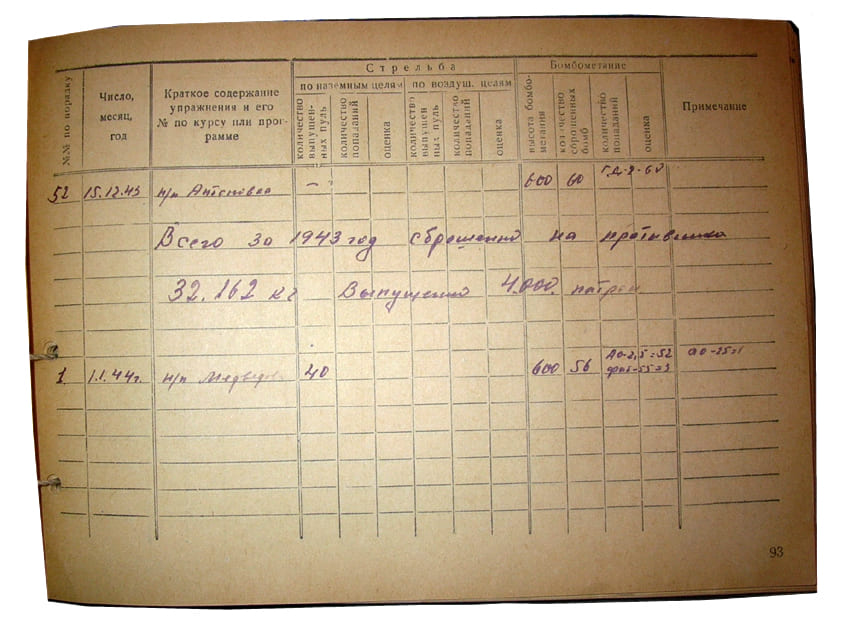 Стрельба
Бомбометание
№№ по порядку
Число, месяц, год
Краткое содержание упражнения и его № по курсу или программе
по наземным целям
по воздуш. целям
количество выпущенных пуль
количество попаданий
оценка
количество выпущенных пуль
количество попаданий
оценка
высота бомбометания
количество сброшенных бомб
количество попаданий
оценка
Примечание
52 15.12.43 н/п – 600 60
Всего за 1943 год сброшенно на противника
32.162 кг Выпущенно 4.000. патрон
1 1.1.44г. н/п 40 600 56 АО-2,5=52 АО-25=1
93